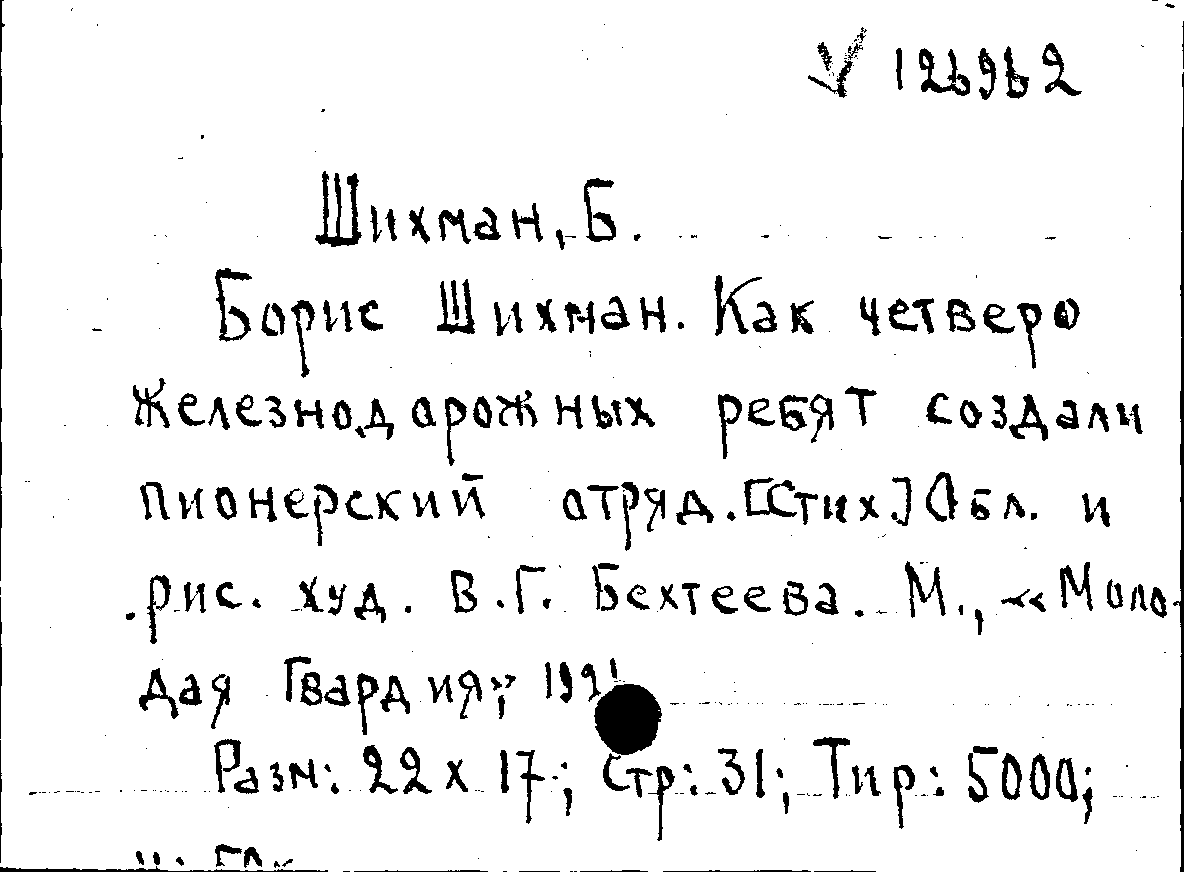 126962
Шихман, Б.
Борис Шихман. Как четверо
железнодарожных ребят создали
пионерский атряд. [Стих] Обл. и
рис. худ. В.Г. Бехтеева. М., «Моло-
дая Гвардия»;
Разм: 22 х 17; Стр: 31; Тир: 5000;